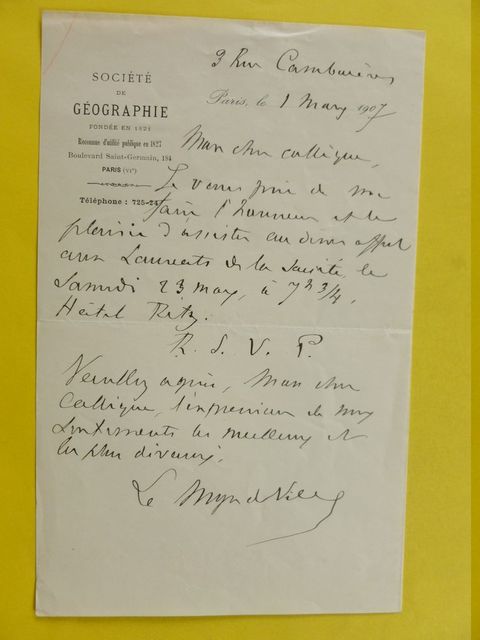 3 Rue Cambacérès
SOCIÉTÉ
DE
GÉOGRAPHIE
FONDÉE EN 1821
Reconnue d'utilité publique en 1827
Boulevard Saint-Germain, 184
PARIS (VIe)
Téléphone : 725-24
Paris, le 1 Mars 1907
Mon cher collègue,
Je vous prie de me
faire l'honneur et le
plaisir d'assister au diner offert
aux Lauréats de la Société le
Samedi 23 mars, à 7h 3/4,
Hôtel Ritz.
R. S. V. P.
Veuillez agréer, Mon cher
Collègue, l'expression de mes
sentiments les meilleurs et
les plus dévoués.
Le Myre de Vilers